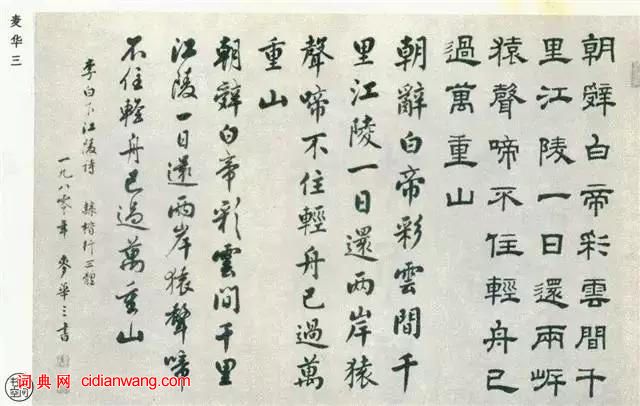 麦华三
朝辤白帝彩雲間千
里江陵一日還兩岸
猿聲啼不住輕舟已
過萬重山
朝辭白帝彩雲間千
里江陵一日還兩岸猿
聲啼不住輕舟已過萬
重山
朝辤白帝彩雲間千里
江陵一日還兩岸猿聲啼
不住輕舟已過萬重山
李白下江陵詩 隸楷行三體
一九八零年 麥華三書
词典网 cidianwang.com